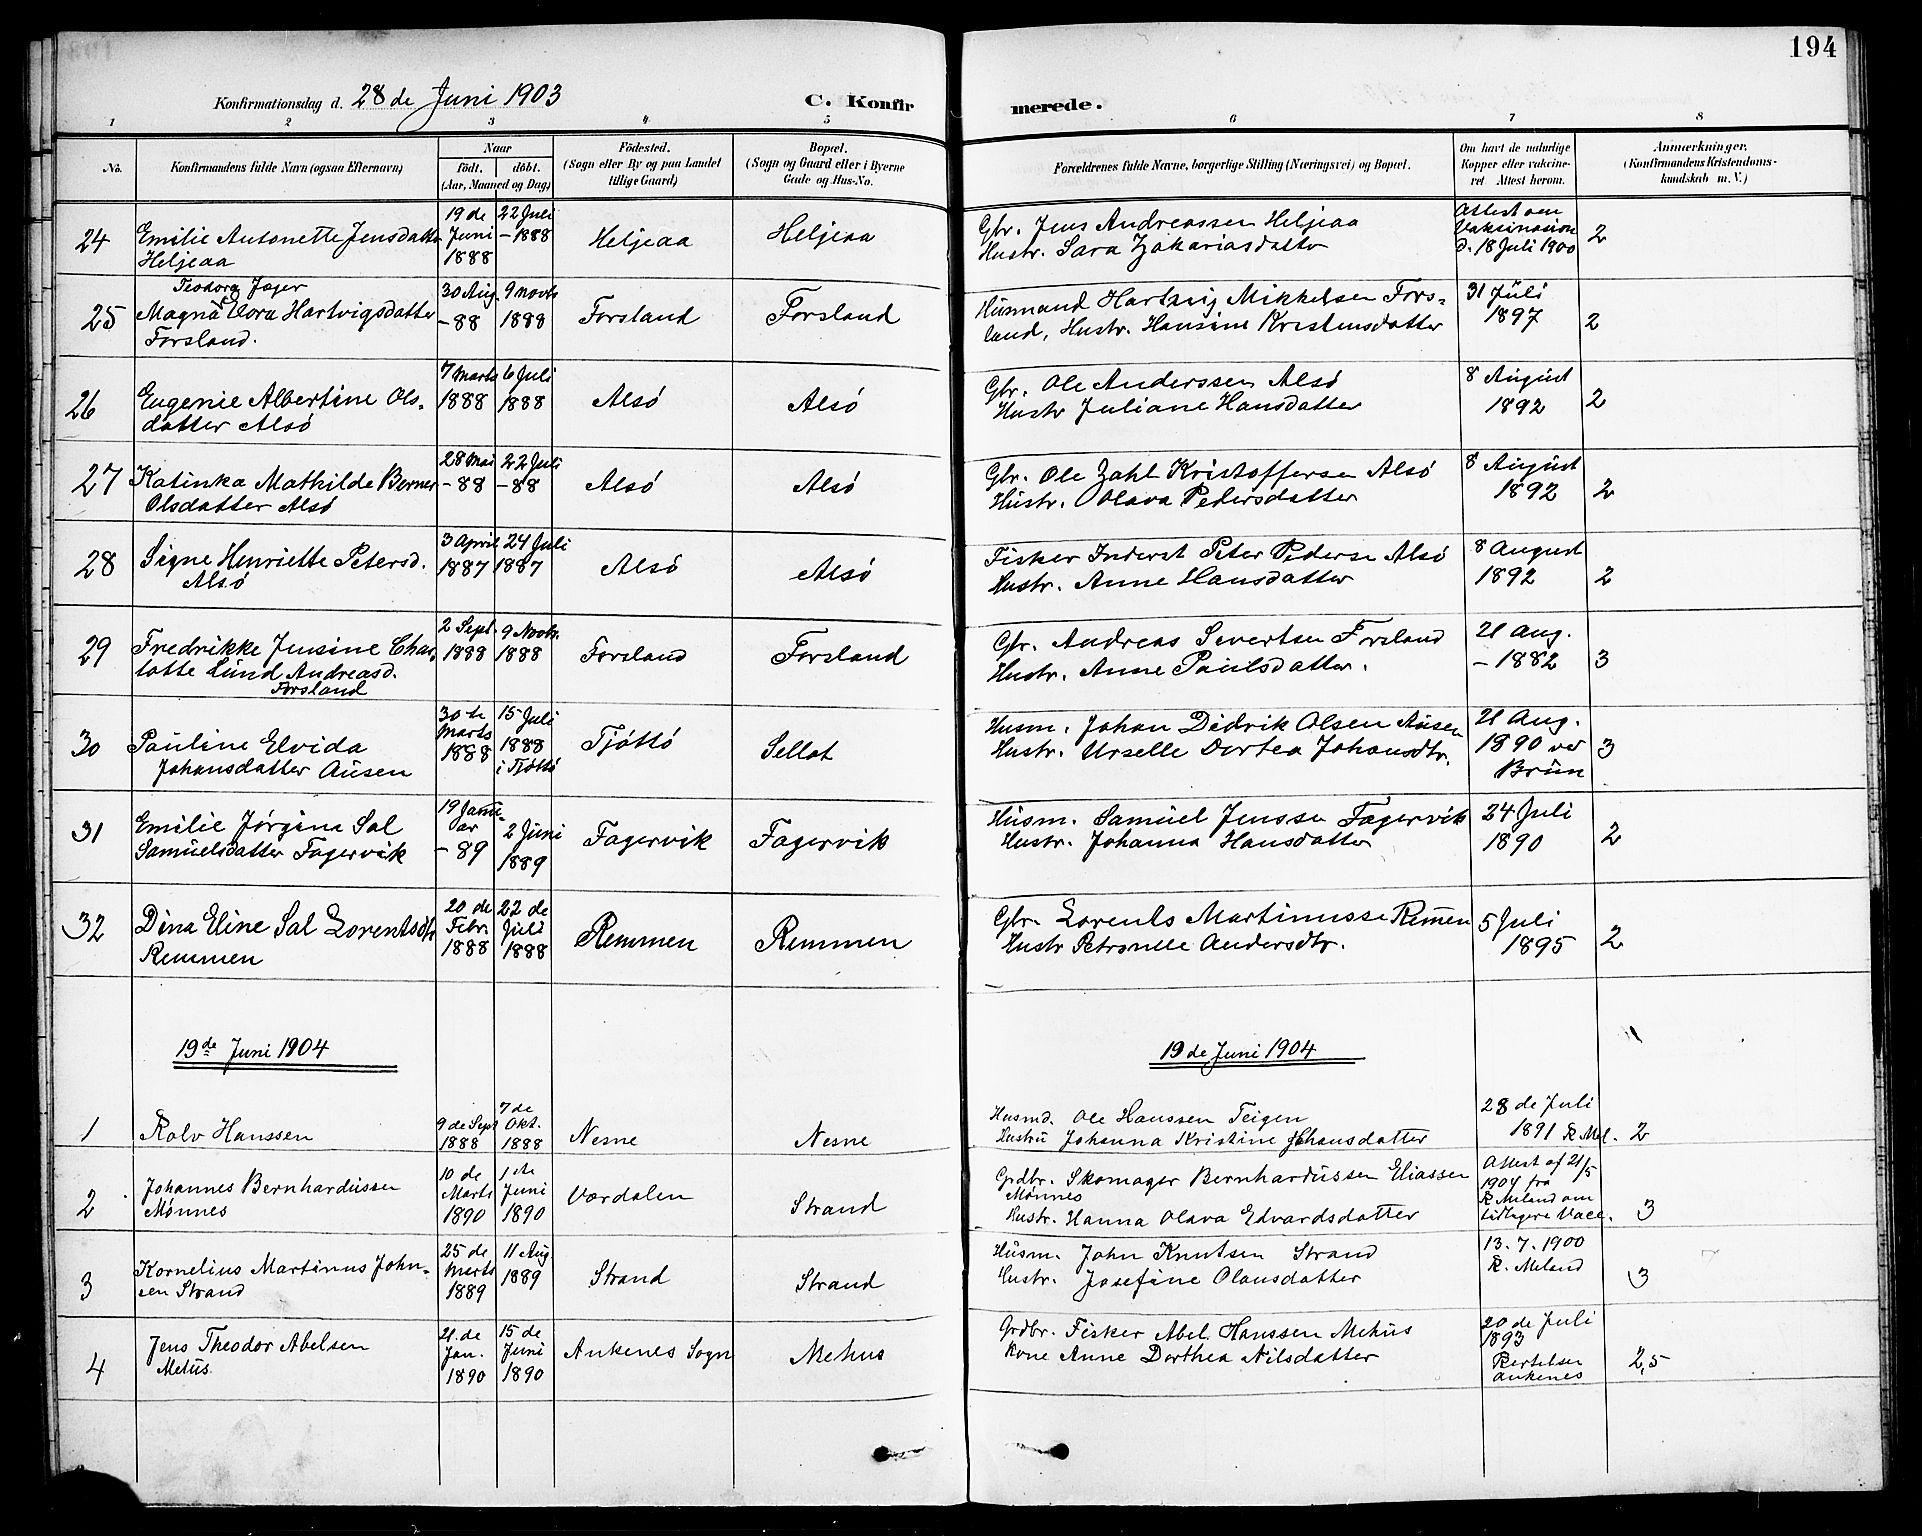 194
Konfirmationsdag d. 28 de Juni 1903
C. Konfirmerede.
1 2 3 4 5 6 7 8
No.
Konfirmandens fulde Navn (ogsaa Efternavn)
Naar
födt. döbt.
(Aar, Maaned og Dag)
Födested.
(Sogn eller By og paa Landet
tillige Gaard)
Bopæl.
(Sogn og Gaard eller i Byerne
Gade og Hus-No.
Forældrenes fulde Navne, borgerlige Stilling (Næringsvei) og Bopæl.
Om havt de naturlige
Kopper eller vaccine-
ret. Attest herom.
Anmærkninger.
(Konfirmandens Kristendoms-
kundskab m. V.)
24
Emilie Antonette Jensdatter
Heljeaa
19 de
Juni
1888
22 Juli
- 1888
Heljeaa
Heljeaa
Gbr. Jens Andreassen Heljeaa
Hustr. Sara Zakariasdatter
Attest om
Vaksination
d. 18 Juli 1900
2
25
Teodora Jager
Magna Hartvigsdatter
Forsland.
30 Aug.
- 88
9 Novbr
1888
Forsland
Forsland
Husmand Hartvig Mikkelsen Fors-
land, Hustr. Hansine Kristensdatter
31 Juli
1897
2
26
Eugenie Albertine Ols-
datter Alsö
7 Marts
1888
6 Juli
1888
Alsö
Alsö
Gbr. Ole Anderssen Alsö
Hustr Juliane Hansdatter
8 August
1892
2
27
Katinka Mathilde Berner
Olsdatter Alsö
28 Mai
- 88
22 Juli
- 88
Alsö
Alsö
Gbr. Ole Zahl Kristoffersen Alsö
Hustr. Olava Pedersdatter
8 August
1892
2
28
Signe Henriette Petersd.
Alsö
3 April
1887
24 Juli
1887
Alsö
Alsö
Fisker Inderst Peter Pederse Alsö
Hustr. Anne Hansdatter
8 August
1892
2
29
Fredrikke Jensine Char-
lotte Lund Andreasd.
Forsland
2 Sept.
1888
9 Novbr.
1888
Forsland
Forsland
Gbr. Andreas Sivertsen Forsland
Hustr. Anne Paulsdatter.
21 Aug.
- 1882
3
30
Pauline Elvida
Johansdatter Ausen
30 te
Marts
1888
15 Juli
1888
i Tjöttö
Tjöttö
Sellat
Husm. Johan Didrik Olsen Ausen
Hustr. Urselle Dortea Johansdtr.
21 Aug.
1890 ved
Brun
3
31
Emilie Jörgine Sal
Samuelsdatter Fagervik
19 Janu-
ar
- 89
2 Juni
1889
Fagervik
Fagervik
Husm. Samuel Jensse Fagervik
Hustr. Johanna Hansdatter
24 Juli
1890
2
32
Dina Eline Sal Lorentsdtr
Remmen
20 de
Febr.
1888
22 de
Juli
1888
Remmen
Remmen
Gbr. Lorents Martinusse Remen
Hustr Petronelle Andersdtr.
5 Juli
1895
2
19de Juni 1904
19 de Juni 1904
1
Rolv Hanssen
9 de Sept
1888
7 de
Okt.
1888
Nesne
Nesne
Husmd. Ole Hanssen Teigen
Hustru Johanna Kristine Johansdatter
28 de Juli
1891 R Mel.
2
2
Johannes Bernhardussen
Mønnes
10 de
Marts
1890
1 de
Juni
1890
Værdalen
Strand
Grdbr. Skomager Bernhardussen Eliassen
Mønnes
Hustr. Hanna Olava Edvardsdatter
Attest af 21/5
1904 fra
R. Meland om
tidligere Vacc.
3
3
Kornelius Martinus John-
sen Strand
25 de
Marts
1889
11 Aug
1889
Strand
Strand
Husm. John Knutsen Strand
Hustr. Josefine Olausdatter
13. 7. 1900
R. Meland
3
4
Jens Theodor Abelsen
Mehus.
21. de
Jan.
1890
15 de
Juni
1890
Ankenes Sogn
Mehus
Grdbr. Fisker Abel Hanssen Mehus
Kone Anne Dorthea Nilsdatter
20 de Juli
1893
Bertelsen
Ankenes
2,5